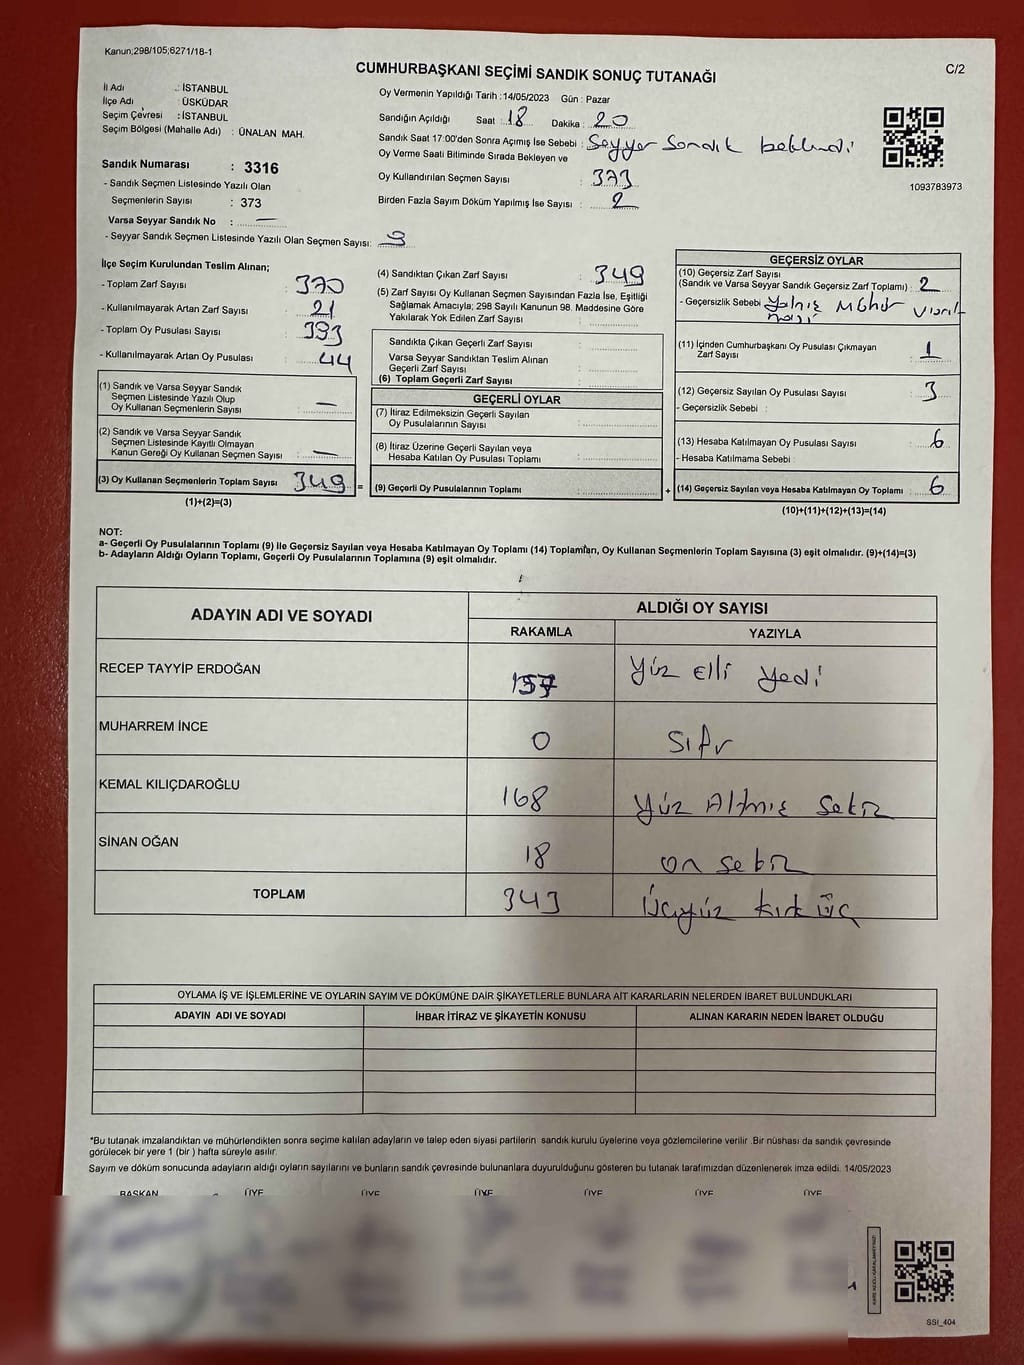 Kanun;298/105;6271/18-1
C/2
CUMHURBAŞKANI SEÇİMİ SANDIK SONUÇ TUTANAĞI
İl Adı : İSTANBUL
İlçe Adı : ÜSKÜDAR
Seçim Çevresi : İSTANBUL
Seçim Bölgesi (Mahalle Adı) : ÜNALAN MAH.
Sandık Numarası : 3316
- Sandık Seçmen Listesinde Yazılı Olan
Seçmenlerin Sayısı : 373
Varsa Seyyar Sandık No : —
- Seyyar Sandık Seçmen Listesinde Yazılı Olan Seçmen Sayısı:
Oy Vermenin Yapıldığı Tarih :14/05/2023 Gün : Pazar
Sandığın Açıldığı Saat : 18 Dakika : 20
Sandık Saat 17:00'den Sonra Açımış İse Sebebi : Seyyar Sandık beklendi
Oy Verme Saati Bitiminde Sırada Bekleyen ve
Oy Kullandırılan Seçmen Sayısı : 373
Birden Fazla Sayım Döküm Yapılmış İse Sayısı : 2
1093783973
İlçe Seçim Kurulundan Teslim Alınan;
- Toplam Zarf Sayısı : 370
- Kullanılmayarak Artan Zarf Sayısı : 21
- Toplam Oy Pusulası Sayısı : 393
- Kullanılmayarak Artan Oy Pusulası : 44
(1) Sandık ve Varsa Seyyar Sandık
Seçmen Listesinde Yazılı Olup
Oy Kullanan Seçmenlerin Sayısı : —
(2) Sandık ve Varsa Seyyar Sandık
Seçmen Listesinde Kayıtlı Olmayan
Kanun Gereği Oy Kullanan Seçmen Sayısı : —
(3) Oy Kullanan Seçmenlerin Toplam Sayısı 349 =
(1)+(2)=(3)
(4) Sandıktan Çıkan Zarf Sayısı : 349
(5) Zarf Sayısı Oy Kullanan Seçmen Sayısından Fazla İse, Eşitliği
Sağlamak Amacıyla; 298 Sayılı Kanunun 98. Maddesine Göre
Yakılarak Yok Edilen Zarf Sayısı :
Sandıkta Çıkan Geçerli Zarf Sayısı :
Varsa Seyyar Sandıktan Teslim Alınan
Geçerli Zarf Sayısı :
(6) Toplam Geçerli Zarf Sayısı :
GEÇERLİ OYLAR
(7) İtiraz Edilmeksizin Geçerli Sayılan
Oy Pusulalarının Sayısı :
(8) İtiraz Üzerine Geçerli Sayılan veya
Hesaba Katılan Oy Pusulası Toplamı :
(9) Geçerli Oy Pusulalarının Toplamı : +
GEÇERSİZ OYLAR
(10) Geçersiz Zarf Sayısı
(Sandık ve Varsa Seyyar Sandık Geçersiz Zarf Toplamı) : 2
- Geçersizlik Sebebi : Yalnız Mühür
(11) İçinden Cumhurbaşkanı Oy Pusulası Çıkmayan
Zarf Sayısı : 1
(12) Geçersiz Sayılan Oy Pusulası Sayısı : 3
- Geçersizlik Sebebi :
(13) Hesaba Katılmayan Oy Pusulası Sayısı : 6
- Hesaba Katılmama Sebebi :
(14) Geçersiz Sayılan veya Hesaba Katılmayan Oy Toplamı : 6
(10)+(11)+(12)+(13)=(14)
NOT:
a- Geçerli Oy Pusulalarının Toplamı (9) ile Geçersiz Sayılan veya Hesaba Katılmayan Oy Toplamı (14) Toplamları, Oy Kullanan Seçmenlerin Toplam Sayısına (3) eşit olmalıdır. (9)+(14)=(3)
b- Adayların Aldığı Oyların Toplamı, Geçerli Oy Pusulalarının Toplamına (9) eşit olmalıdır.
ADAYIN ADI VE SOYADI ALDIĞI OY SAYISI
RAKAMLA YAZIYLA
RECEP TAYYİP ERDOĞAN 157 Yüz Elli Yedi
MUHARREM İNCE 0 Sıfır
KEMAL KILIÇDAROĞLU 168 Yüz Altmış Sekiz
SİNAN OĞAN 18 on sekiz
TOPLAM 343 Üçyüz kırk üç
OYLAMA İŞ VE İŞLEMLERİNE VE OYLARIN SAYIM VE DÖKÜMÜNE DAİR ŞİKAYETLERLE BUNLARA AİT KARARLARIN NELERDEN İBARET BULUNDUKLARI
ADAYIN ADI VE SOYADI İHBAR İTİRAZ VE ŞİKAYETİN KONUSU ALINAN KARARIN NEDEN İBARET OLDUĞU
*Bu tutanak imzalandıktan ve mühürlendikten sonra seçime katılan adayların ve talep eden siyasi partilerin sandık kurulu üyelerine veya gözlemcilerine verilir .Bir nüshası da sandık çevresinde
görülecek bir yere 1 (bir ) hafta süreyle asılır.
Sayım ve döküm sonucunda adayların aldığı oyların sayılarını ve bunların sandık çevresinde bulunanlara duyurulduğunu gösteren bu tutanak tarafımızdan düzenlenerek imza edildi. 14/05/2023
BAŞKAN ÜYE ÜYE ÜYE ÜYE ÜYE ÜYE
SSI_404